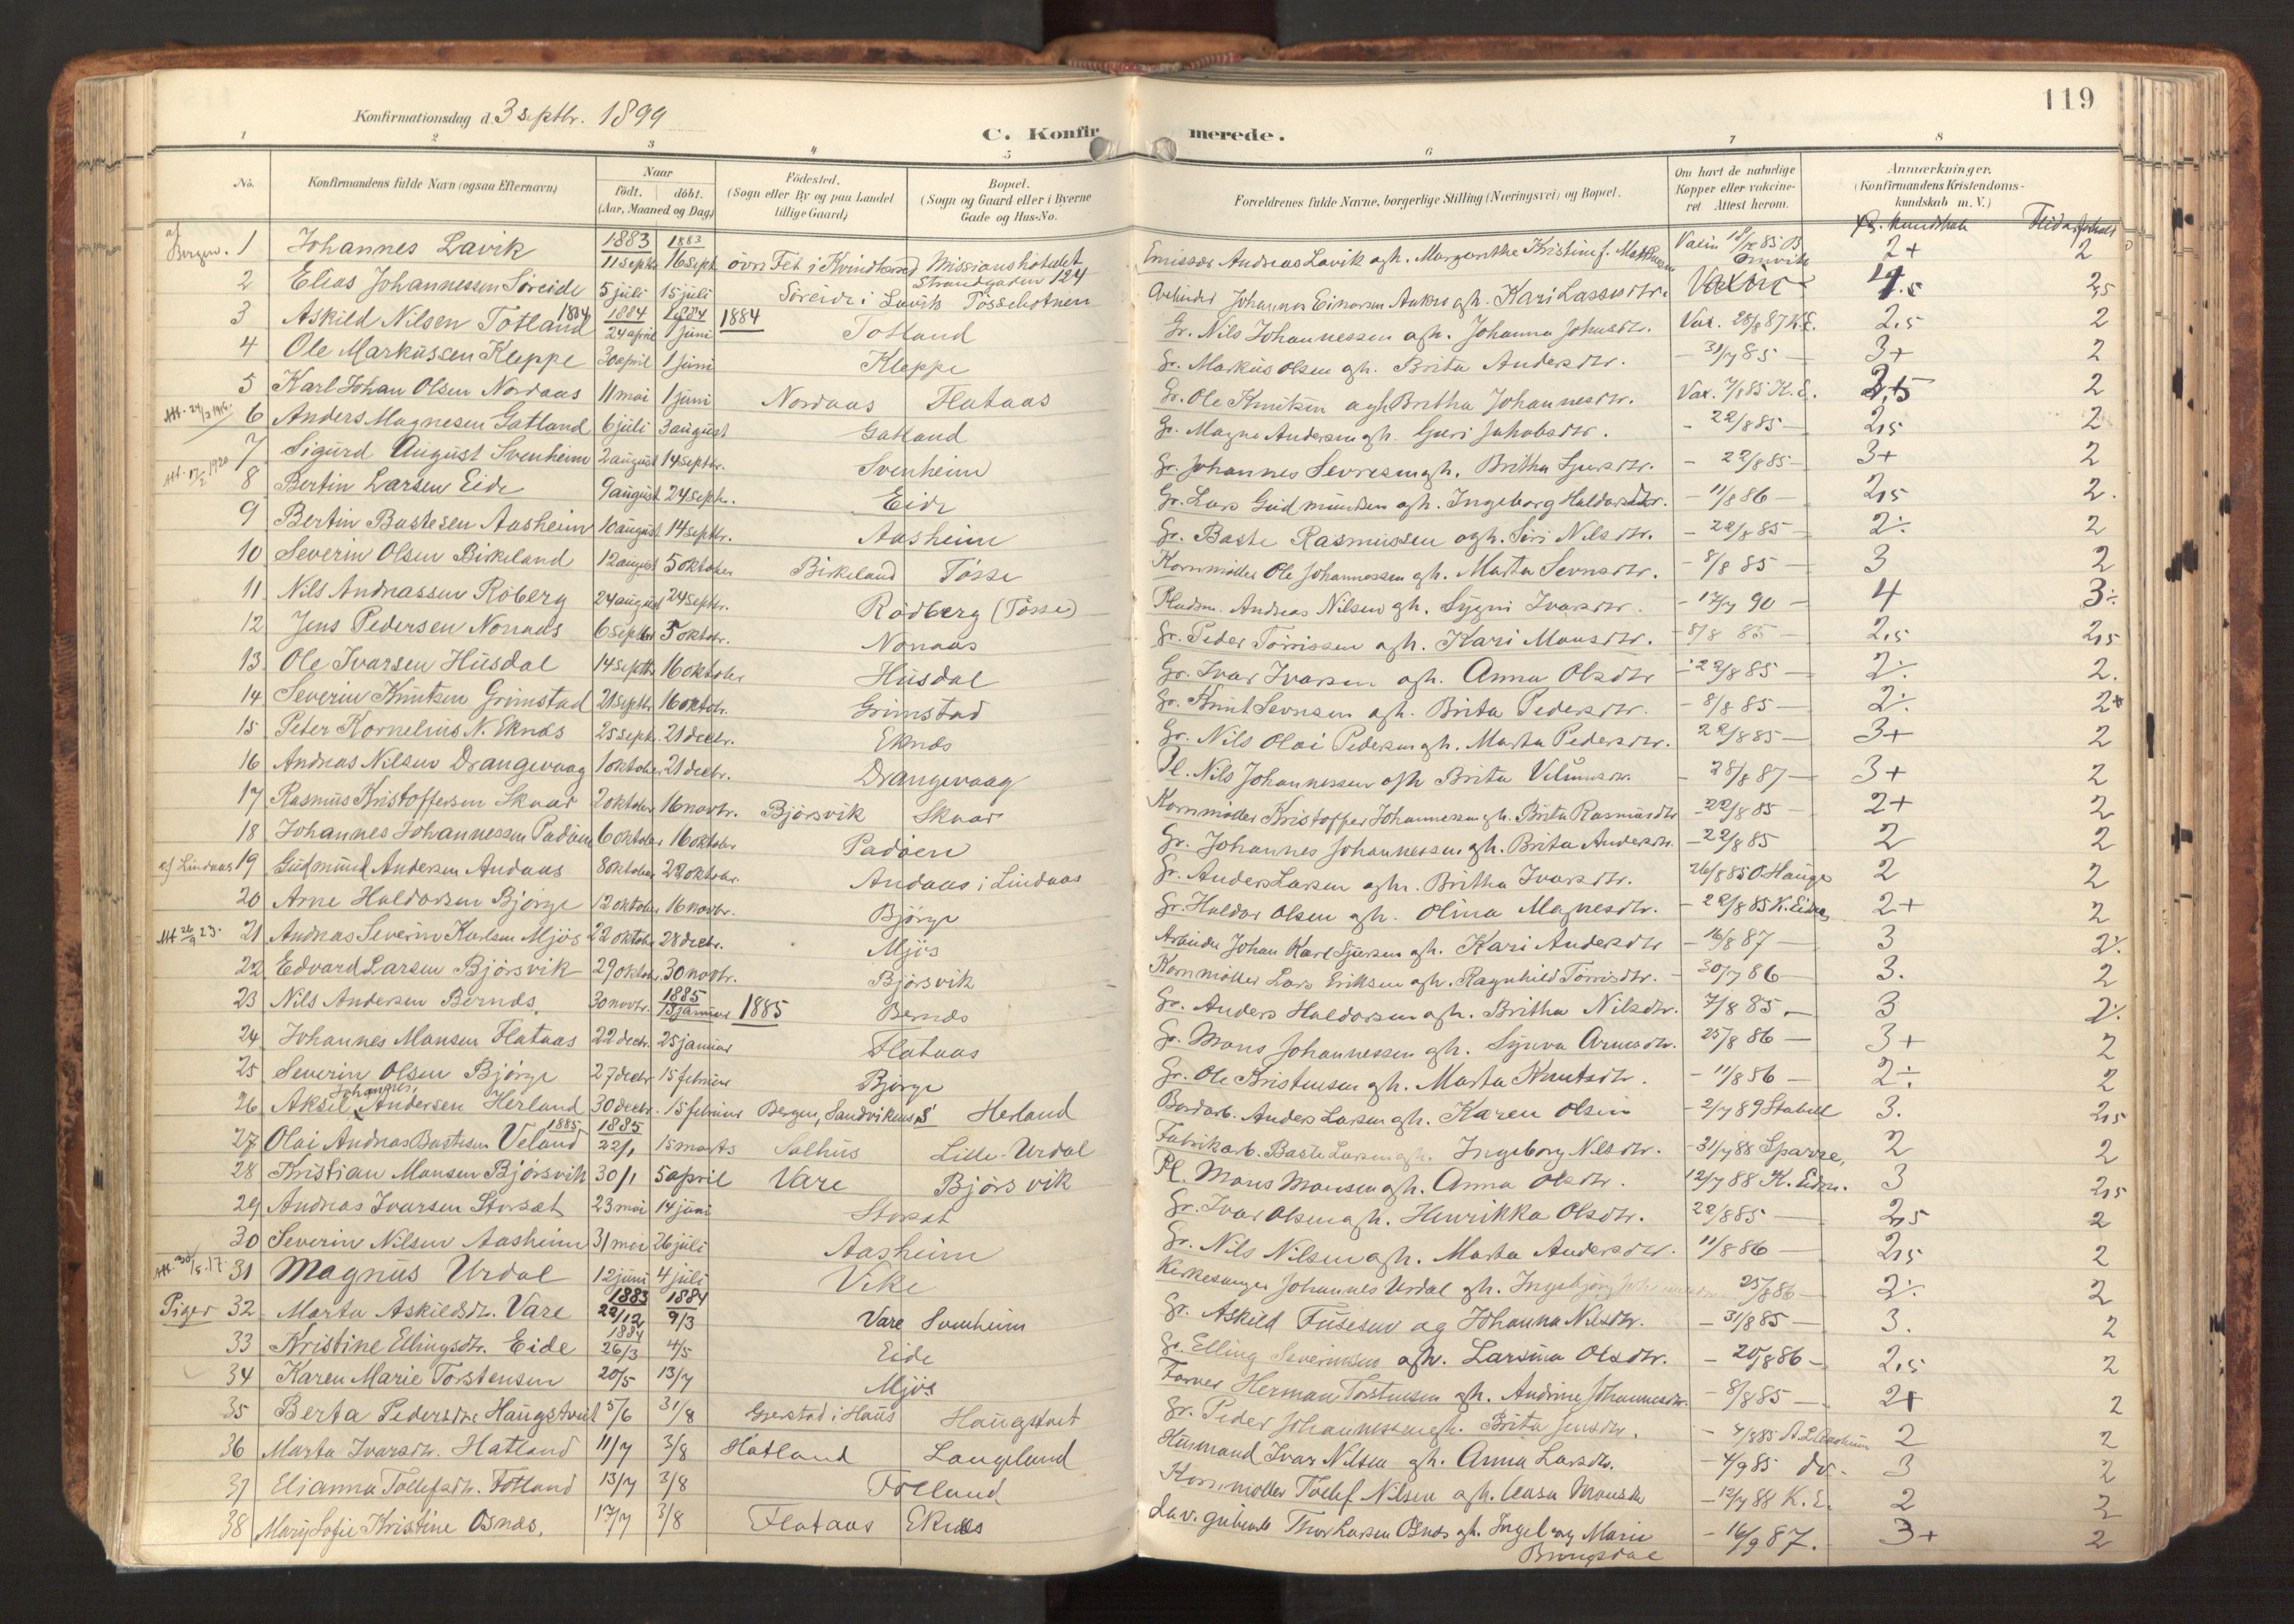 119
Konfirmationsdag d. 3 septbr. 1899
C. Konfirmerede.
1 2 3 4 5 6 7 8
No. Konfirmandens fulde Navn (ogsaa Efternavn) Naar födt. döbt. (Aar, Maaned og Dag) Födested. (Sogn eller By og paa Landet tillige Gaard) Bopæl. (Sogn og Gaard eller i Byerne Gade og Hus-No. Forældrenes fulde Navne, borgerlige Stilling (Næringsvei) og Bopæl. Om havt de naturlige Kopper eller vakcineret. Attest herom. Anmærkninger. (Konfirmandens Kristendomskundskab m. V.)
af Bergen. 1 Johannes Lavik 1883 11 septbr 1883 16 sept. övre Feb i Kvindherred Missionshotellet Strandgaden 124 Emissær Andreas Lavik ogh. Margrethe Kristine f. 2+ 2
2 Elias Johannessen Söreide 5 juli 15 juli Söreide i Lavik Tössebotnen Arbeider Johannes Einarsen ogh. Kari Lassesdtr. 25
3 Askild Nilsen Totland 1884 1884 24 april 1884 1 juni 1884 Totland Gr. Nils Johannessen ogh. Johanna Johnsdtr. Vax. 28/8 87 K.E. 2.5 2
4 Ole Markussen Kleppe 30 april 1 juni Kleppe Gr. Markus Olsen gh. Brita Andersdtr. - 31/7 85 - 3+ 2
5 Karl Johan Olsen Nordaas 11 mai 1 juni Nordaas Flataas Gr. Ole Knutsen ogh Britha Johannesdtr. Vax. 7/8 85 K.E. 2
Att. 24/3 1916. 6 Anders Magnesen Gatland 6 juli 3 august Gatland Gr. Magne Andersen gh. Guri Jakobsdtr. - 22/8 85 - 2,5 2
7 Sigurd August Svenheim 2 august 14 septbr. Svenheim Gr. Johannes Severesen gh. Britha Sjursdtr. - 22/8 85 - 3+ 2
Att. 17/2 1920 8 Bertin Larsen Eide 9 august 24 sept. Eide Gr. Lars Gudmundsen ogh. Ingeborg Haldorsdtr. - 11/8 86 - 2,5 2.
9 Bertin Bastesen Aasheim 10 august 14 septbr. Aasheim Gr. Baste Rasmussen ogh. Siri Nilsdtr. - 22/8 85 - 2÷ 2
10 Severin Olsen Birkeland 12 august 5 oktober Birkeland Tösse Kornmöller Ole Johannessen gh. Marta Sevnsdtr. - 8/8 85 - 3 2
11 Nils Andreassen Röberg 24 august 24 septbr. Rödberg (Tösse) Pladsm. Andreas Nilsen gh. Sygni Ivarsdtr. - 17/7 90 - 4 3÷
12 Jens Pedersen Nonaas 6 septbr 5 oktobr. Nonaas Gr. Peder Törrissen ogh. Kari Monsdtr. - 8/8 85 - 2,5 2,5
13 Ole Ivarsen Husdal 14 septbr 16 oktober Husdal Gr. Ivar Ivarsen ogh. Anna Olsdtr - 22/8 85 - 2÷ 2.
14 Severin Knutsen Grimstad 21 septbr 16 oktobr. Grimstad Gr. Knut Sevnsen ogh. Brita Pedersdtr. - 8/8 85 - 2÷ 2+
15 Peter Kornelius N. Eknæs 25 septr. 21 decbr. Eknæs Gr. Nils Olai Pedersen gh. Marta Pedersdtr. 22/8 85 - 3+ 2
16 Andreas Nilsen Drangevaag 1 oktober 21 decbr. Drangevaag Pl. Nils Johannessen ogh Brita - 28/8 87 - 3+ 2
17 Rasmus Kristoffersen Skaar 2 oktober 16 novbr. Björsvik Skaar Kornmöller Kristoffer Johannessen gh. Brita Rasmusdtr - 22/8 85 - 2+ 2
18 Johannes Johannessen Padöen 6 oktober 16 oktober Padöen Gr. Johannes Johannessen gh. Brita Andersdtr. - 22/8 85 2 2
af Lindaas 19 Gudmund Andersen Andaas 8 oktober 22 oktober. Andaas i Lindaas Gr. Anders Larsen ogh. Britha Ivarsdtr. 26/8 85 O. Hauge 2 2
20 Arne Haldorsen Björge 12 oktober 16 novbr. Björge Gr. Haldor Olsen gh. Olina Magnesdtr. - 22/8 85 K. Eidnes 2+ 2
Att 26/9 23. 21 Andreas Severin Karlsen Mjös 22 oktober 28 decbr. Mjös Arbeider Johan Karl Sjursen ogh. Kari Andersdtr - 16/8 87 - 3 2÷
22 Edvard Larsen Björsvik 29 oktobr 30 novbr. Björsvik Kornmöller Lars Eriksen ogh. Ragnhild Törrisdtr. - 30/7 86 - 3. 2
23 Nils Andersen Bernæs. 30 novbr. 1885 18 januar 1885 Bernæs Gr. Anders Haldorsen ogh. Britha Nilsdtr. 7/8 85. - 3 2÷
24 Johannes Monsen Flataas 22 decbr. 25 januar Flataas Gr. Mons Johannessen gh. Synva Arnesdtr. 25/8 86 - 3+ 2
25 Severin Olsen Björge 27 decbr 15 februar Björge Gr. Ole Kristensen gh. Marta Knutsdtr. - 11/8 86 - 2÷ 2
26 Aksel Johannes Andersen Herland 30 decbr. 15 februar Bergen, Sandvikens S Herland Bordarb. Anders Larsen gh. Karen Olsen - 2/7 89 Stabell 3. 2,5
27 Olai Andreas Bastesen Veland 1885 1885 22/1 15 marts Salhus Lille-Urdal Fabrikarb. Baste Larsen gh. Ingeborg Nilsdtr. - 31/7 88 Sparre. 2 2
28 Kristian Monsen Björsvik 30/1 5 april Vare Björsvik Pl. Mons Monsen gh. Anna Olsdtr. 12/7 88 K. Eidn. 3 2,5
29 Andreas Ivarsen Storsæt 23 mai 14 juni Storsæt Gr. Ivar Olsen ogh. Henrikka Olsdtr. 22/8 85 - 2,5 2
30 Severin Nilsen Aasheim 31 mai 26 juli Aasheim Gr. Nils Nilsen ogh. Marta Andersdtr. 11/8 86 - 2,5 2
Att. 30/5.17. 31 Magnus Urdal 12 juni 4 juli Vike Kirkesanger Johannes Urdal gh. Ingebjörg 25/8 86 - 2÷ 2
Piger 32 Marta Askildsdtr. Vare 1883 22/12 1884 9/3 Vare Svenheim Gr. Askild Fusesen og Johanna Nilsdtr. - 31/8 85 - 3. 2
33 Kristine Ellingsdtr. Eide 1884 26/3 4/5 Eide Gr. Elling Severinsen ogh. Larsina Olsdtr. - 20/8 86 - 2.5 2
34 Karen Marie Torstensen 20/5 13/7 Mjös Farver Herman Torstensen gh. Andrine Johannesdtr. - 8/8 85 - 2+ 2
35 Berta Pedersdtr Haugstvet 5/6 31/8 Gjerstad i Haus Haugstvet Gr. Peder Johannessen gh. Brita Jensdtr. - 4/8 85 2 2
36 Marta Ivarsdtr. Hatland 11/7 3/8 Hatland Langeland Husmand Ivar Nilsen gh. Anna Larsdtr. - 4/9 85 do. 3 2
37 Elianna Tollefsdtr. Totland 13/7 3/8 Totland Kornmöller Tollef Nilsen ogh. Monsdtr - 12/7 88 K.E. 2 2
38 Mary Sofie Kristine Osnæs. 17/7 3/8 Flataas Eknæs Thor Larsen Osnæs gh. Ingeborg Marie - 16/9 87. 3+ 2